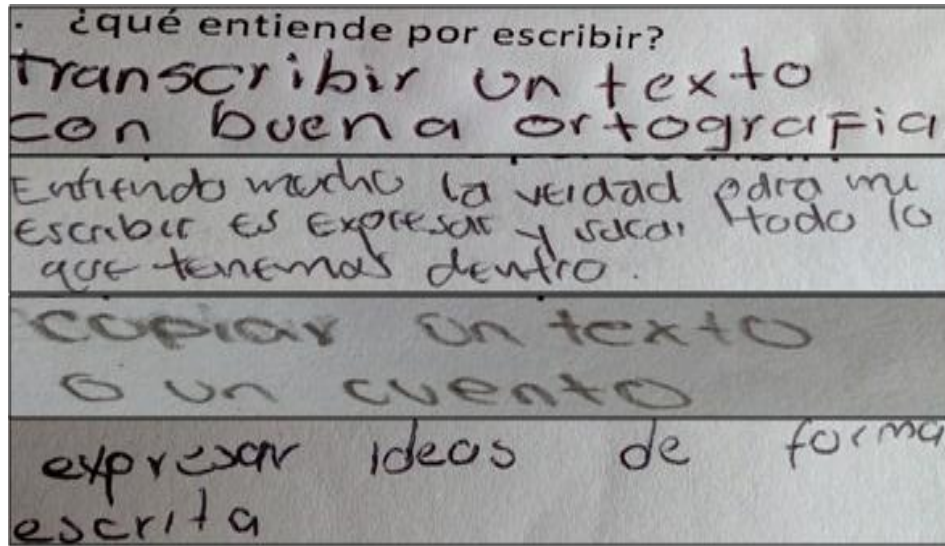 . ¿qué entiende por escribir?
Transcribir un texto
con buena ortografia
Entiendo mucho la verdad para mi
Escribir Es Expresar y sacar todo lo
que tenemos dentro.
copiar un texto
o un cuento
expresar ideas de forma
escrita